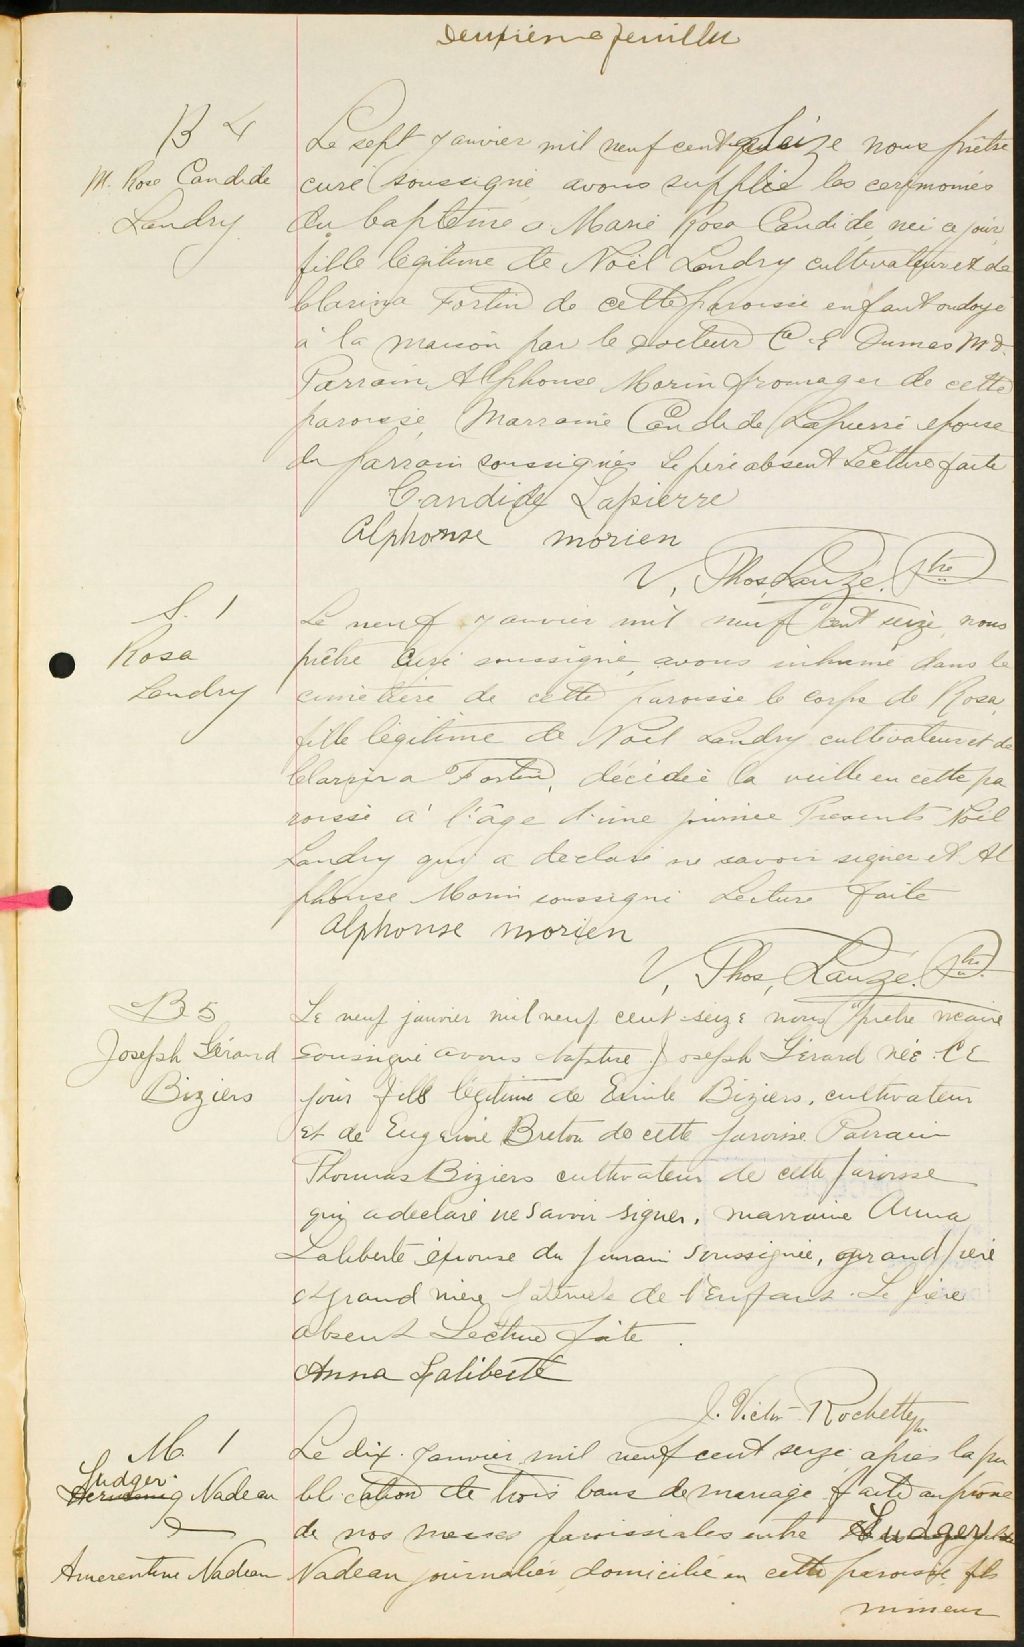 Deuxième feuillet
B 4
M. Rose Candide
Landry
Le sept janvier mil neuf cent seize nous prêtre
curé soussigné avons supplée les ceremonies
du baptême à Marie Rosa Candide, née ce jour,
fille légitime de Noël Landry cultivateur et de
Clarina Fortin de cette paroisse enfant ondoyé
à la maison par le docteur E. Dumas M.D.
Parrain, Alphonse Morin fromager de cette
paroisse, Marraine Candide Lapierre épouse
du parrain soussignés le père absent Lecture faite
Candide Lapierre
Alphonse morien
V, Thos, Lauzé. Ptre
S. 1
Rosa
Landry
Le neuf janvier mil neuf cent seize, nous
prêtre curé soussigné, avons inhumé dans le
cimetière de cette paroisse le corps de Rosa,
fille légitime de Noël Landry cultivateur et de
Clarina Fortin, décédée la veille en cette pa
roisse à l'âge d'une journée Presents Noël
Landry qui a declaré ne savoir signer et Al
phonse Morin soussigné Lecture faite
Alphonse morien
V, Thos, Lauzé. Ptre
B 5
Joseph Gérard
Biziers
Le neuf janvier mil neuf cent seize nous prêtre vicaire
soussigné avons baptisé Joseph Gérard née ce
jour fils légitime de Emile Biziers, cultivateur
et de Eugenie Breton de cette paroisse. Parrain
Thomas Biziers cultivateur de cette paroisse
qui a declaré ne savoir signer, marraine Anna
Laliberté épouse du parrain soussignée, grand père
et grand mère paternels de l'Enfant. Le père
absent Lecture faite.
Anna Laliberté
J. Victor Rochette ptr
M. 1
Ludger
Nadeau
&
Amerentine Nadeau
Le dix janvier mil neuf cent seize après la pu
blication de trois bans de mariage faite au prône
de nos messes paroissiales entre Ludger
Nadeau journalier, domicilié en cette paroisse, fils
mineur